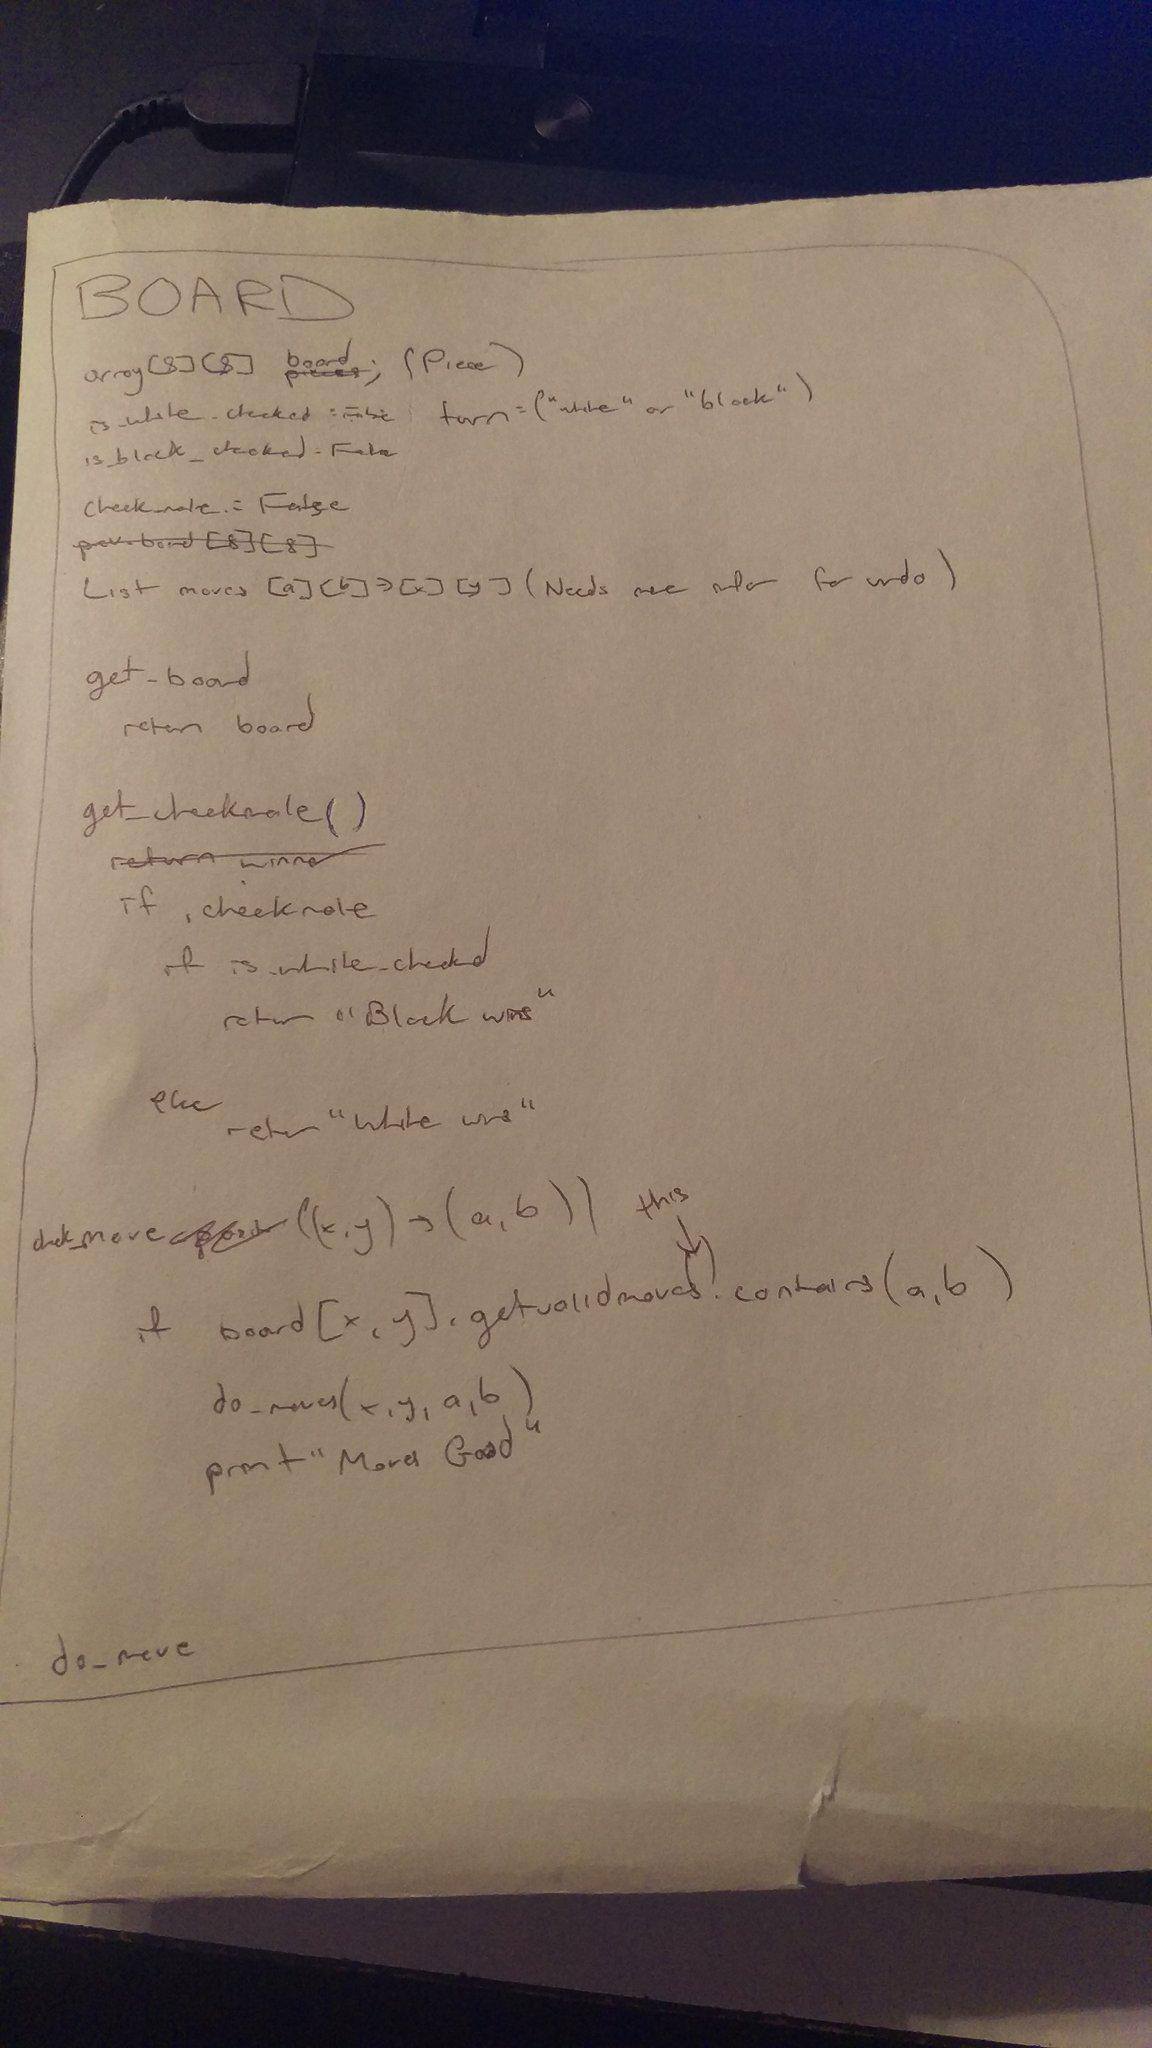 BOARD
array[8][8] board pieces; (Piece)
is_white_checked = False turn = ("white" or "black")
is_black_checked = False
checkmate = False
prev.board [8][8]
List moves [a][b]→[x][y] (Needs more info for undo)
get_board
return board
get_checkmate()
return winner
if checkmate
if is_white_checked
return "Black wins"
else
return "White wins"
check_move ((x,y)→(a,b)) this
if board[x,y].getvalidmoves().contains(a,b)
do_moves(x,y,a,b)
print "Moves Good"
do_move